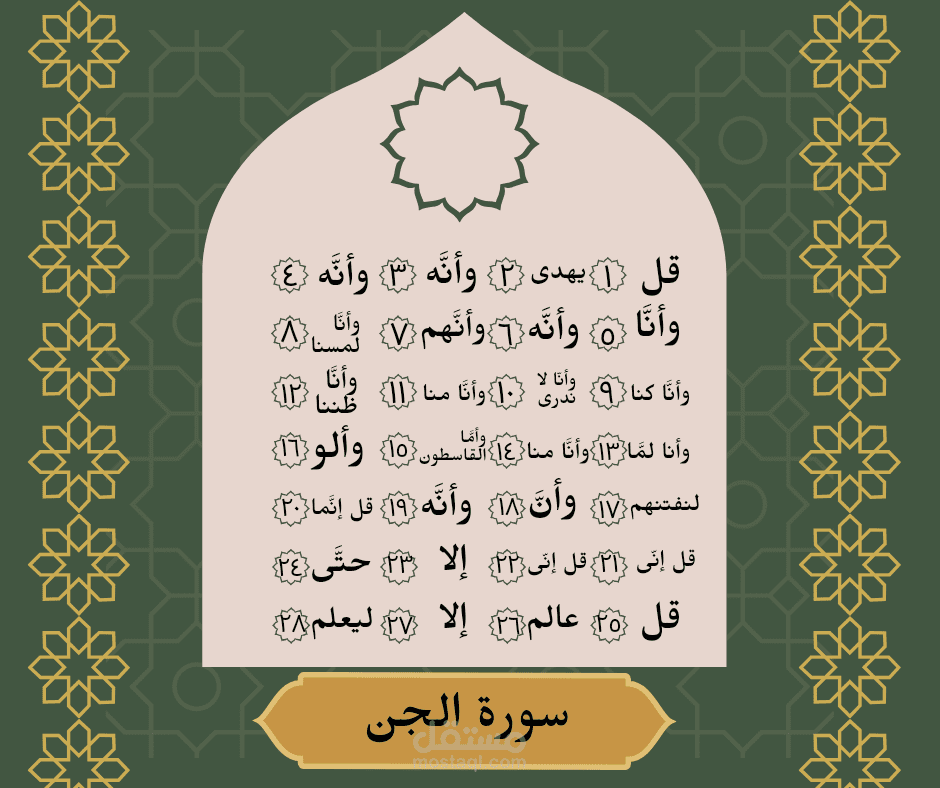 قل ١ يهدى ٢ وأنَّه ٣ وأنَّه ٤
وأنَّا ٥ وأنَّه ٦ وأنَّهم ٧ وأنَّا لمسنا ٨
وأنَّا كنا ٩ وأنَّا لا ندرى ١٠ وأنَّا منا ١١ وأنَّا ظننا ١٢
وأنا لمَّا ١٣ وأنَّا منا ١٤ وأمَّا القاسطون ١٥ وألو ١٦
لنفتنهم ١٧ وأنَّ ١٨ وأنَّه ١٩ قل إنَّما ٢٠
قل إنَى ٢١ قل إنَى ٢٢ إلا ٢٣ حتَّى ٢٤
قل ٢٥ عالم ٢٦ إلا ٢٧ ليعلم ٢٨
سورة الجن
مستقل
mostaql.com